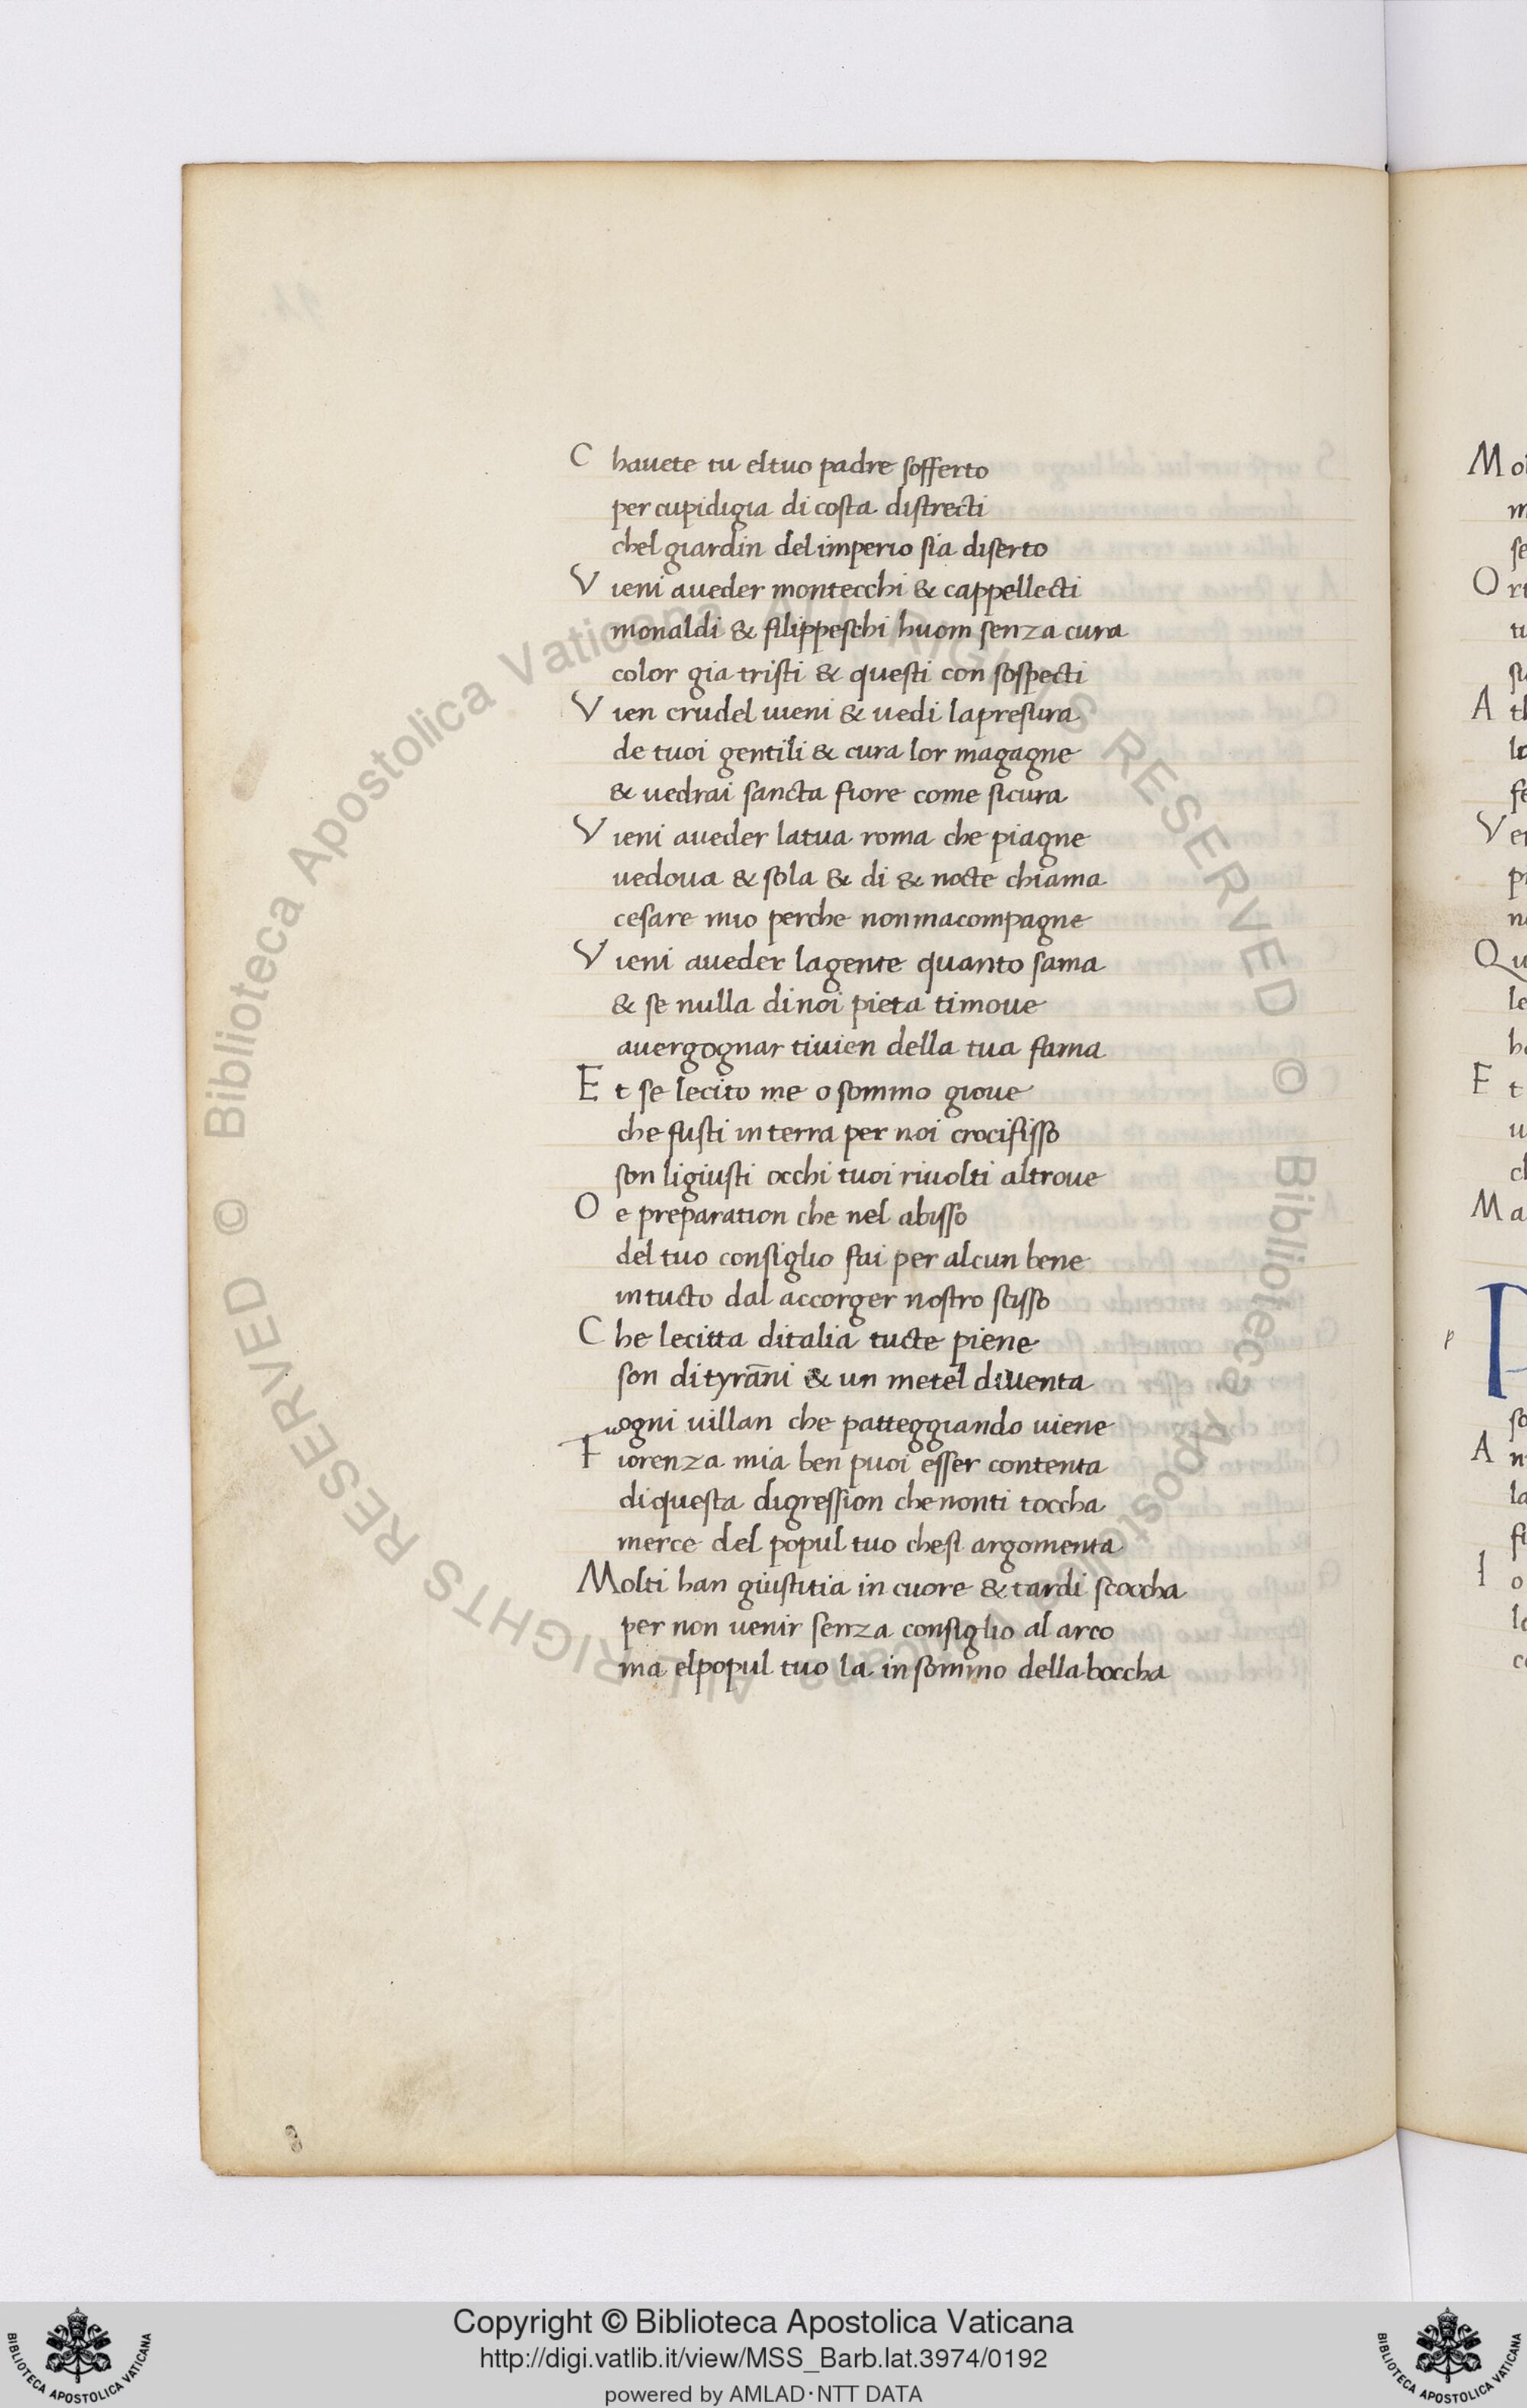 C havete tu el tuo padre sofferto
per cupidigia di costa distrecti
chel giardin del imperio sia diserto
V ieni aveder montecchi & cappellecti
monaldi & filippeschi huom senza cura
color gia tristi & questi con sospecti
V ien crudel vieni & vedi la presura
de tuoi gentili & cura lor magagne
& vedrai sancta fiore come sicura
V ieni aveder latua roma che piagne
vedova & sola & di & nocte chiama
cesare mio perche non macompagne
V ieni aveder lagente quanto sama
& se nulla di noi pieta ti move
avergognar ti vien della tua fama
E t se lecito me o sommo giove
che fusti in terra per noi crocifisso
son li giusti occhi tuoi rivolti altrove
O e preparation che nel abisso
del tuo consiglio fai per alcun bene
in tucto dal accorger nostro scisso
C he le citta ditalia tucte piene
son di tyrāni & un metel diventa
ogni villan che patteggiando viene
F iorenza mia ben puoi esser contenta
di questa digression che non ti toccha
merce del popul tuo che si argomenta
Molti han giustitia in cuore & tardi scoccha
per non venir senza consiglio al arco
ma el popul tuo la in sommo della boccha
Copyright © Biblioteca Apostolica Vaticana
http://digi.vatlib.it/view/MSS_Barb.lat.3974/0192
powered by AMLAD·NTT DATA
© Biblioteca Apostolica Vaticana ALL RIGHTS RESERVED
© Biblioteca Apostolica Vaticana ALL RIGHTS RESERVED
BIBLIOTECA APOSTOLICA VATICANA
BIBLIOTECA APOSTOLICA VATICANA